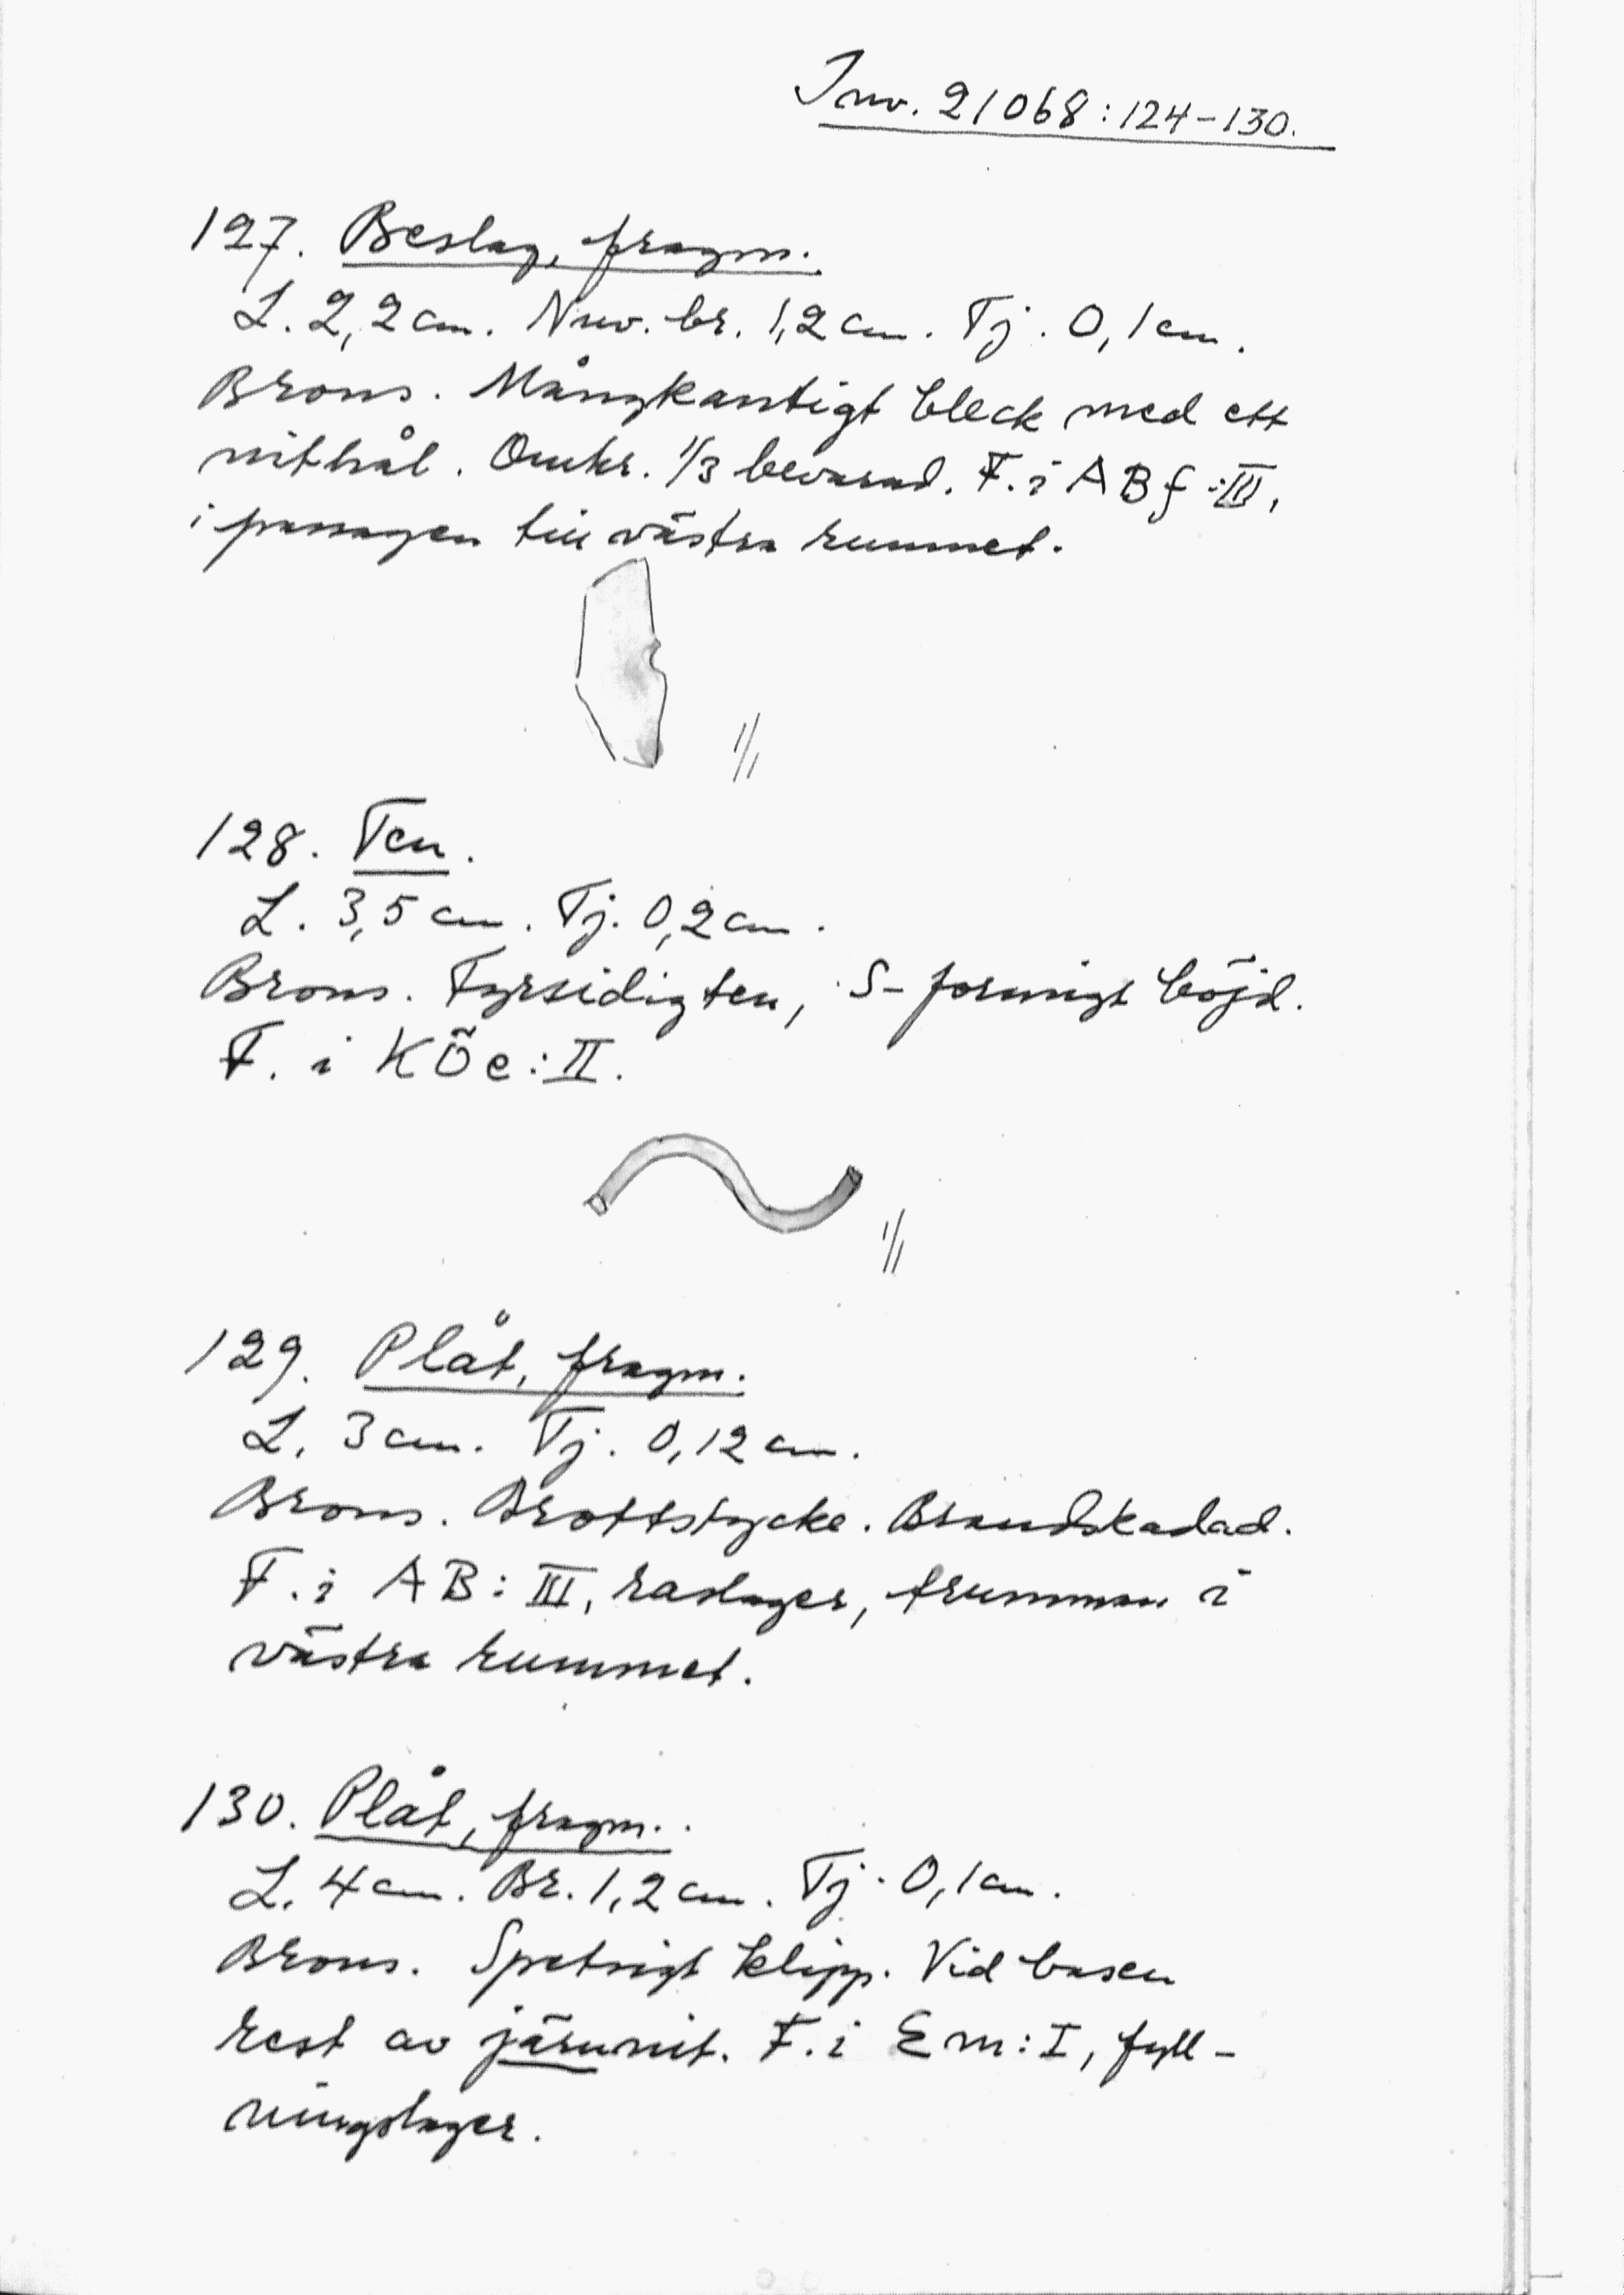 Inv. 21068:124-130.
127. Beslag, fragm.
L. 2,2 cm. Nuv. br. 1,2 cm. Tj. 0,1 cm.
Brons. Mångkantigt bleck med ett
nithål. Omkr. 1/3 bevarad. F. i ABf:III,
i passagen till västra rummet.
1/1
128. Ten.
L. 3,5 cm. Tj. 0,2 cm.
Brons. Fyrsidig ten, S-formigt böjd.
F. i KÖe:II.
1/1
129. Plåt, fragm.
L. 3 cm. Tj. 0,12 cm.
Brons. Brottstycke. Brandskadad.
F. i AB:III, raslager, trumman i
västra rummet.
130. Plåt, fragm.
L. 4 cm. Br. 1,2 cm. Tj. 0,1 cm.
Brons. Spetsigt klipp. Vid basen
rest av järnnit. F. i Em:I, fyll-
ningslager.